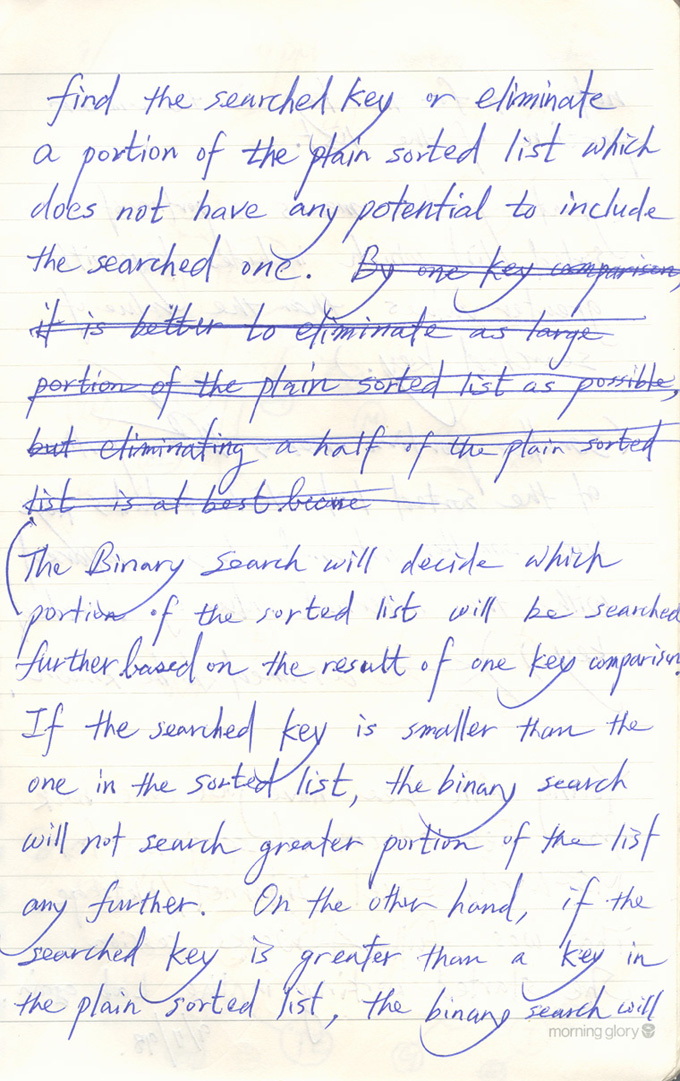 find the searched key or eliminate
a portion of the plain sorted list which
does not have any potential to include
the searched one. By one key comparison,
it is better to eliminate as large
portion of the plain sorted list as possible,
but eliminating a half of the plain sorted
list is at best
The Binary Search will decide which
portion of the sorted list will be searched
further based on the result of one key comparison.
If the searched key is smaller than the
one in the sorted list, the binary search
will not search greater portion of the list
any further. On the other hand, if the
searched key is greater than a key in
the plain sorted list, the binary search will
morning glory